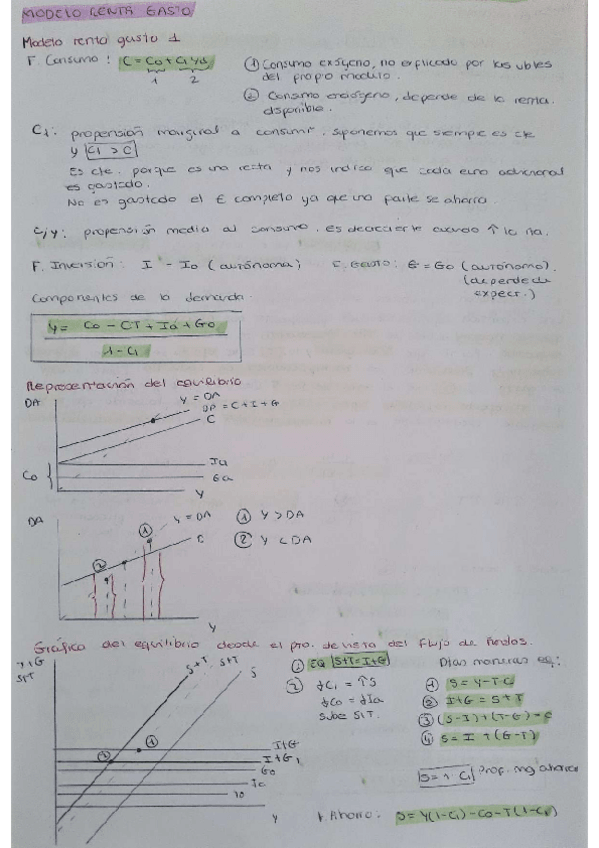 MODELO RENTA GASTO
Modelo renta gasto 1
F. Consumo: C = Co + C1 yd
1 2
① Consumo exógeno, no explicado por las vbles
del propio modulo.
② Consumo endógeno, depende de la renta
disponible.
C1: propensión marginal a consumir. suponemos que siempre es cte
y C1 > C
Es cte. porque es una recta y nos indica que cada euro adicional
es gastado.
No es gastado el € completo ya que una parte se ahorra.
C/y: propensión media al consumo. es decreciente cuando ↑ la
F. Inversión: I = Io (autónoma) F. Gasto: G = Go (autónomo).
(depende de
expect.)
Componentes de la demanda.
Y = Co - CT + Ia + Go
1 - C1
Representación del equilibrio
DA
Y = DA
DA = C + I + G
C
Ia
Ga
Co
Y
DA
Y = DA
① Y > DA
② Y < DA
①
②
Y
Gráfico del equilibrio desde el pto. de vista del flujo de fondos.
S+T
S+T
S+T
S
① EQ S+T = I+G
② ↓C1 = ↑S
↓Co = ↓Ia
sube S+T.
Otras maneras eq:
① S = Y - T - C
② I+G = S+T
③ (S-I) + (T-G) =
④ S = I + (G-T)
①
②
I+G
I+G1
Go
Io
Y
Prop. mg ahorro
F Ahorro: S = Y(1-C1) - Co - T(1-C1)